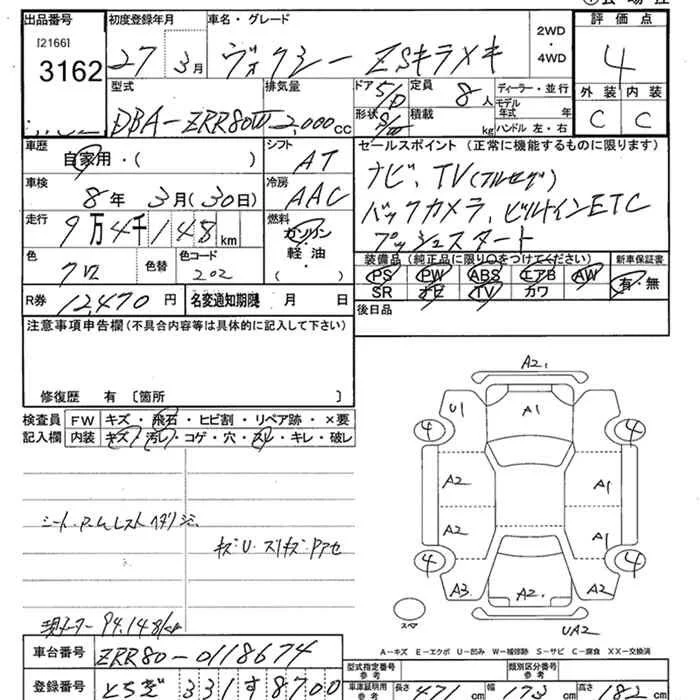 出品番号 初度登録年月 車名・グレード 評価点
[2166]
3162
27 3月 ヴォクシー ZSキラメキ 2WD・4WD 4
型式 排気量 ドア 定員 ディーラー・並行 外装 内装
DBA-ZRR80W 2,000cc 5/D 8人 モデル年式 年 C C
形状 積載 kg ハンドル 左・右
車歴 自家用・( ) シフト AT
セールスポイント (正常に機能するものに限ります)
車検 8年 3月(30日) 冷房 AAC
ナビ、TV(フルセグ)
バックカメラ、ビルトインETC
プッシュスタート
走行 9万4千148km 燃料 ガソリン・軽油・( )
色 クロ 色替 色コード 202
装備品(純正品に限り○をつけてください) 新車保証書
PS PW ABS エアB AW 有・無
SR ナビ TV カワ
R券 12,470円 名変通知期限 月 日
後日品
注意事項申告欄(不具合内容等は具体的に記入して下さい)
修復歴 有 〔箇所 〕
検査員記入欄 FW キズ・飛石・ヒビ割・リペア跡・×要
内装 キズ・汚レ・コゲ・穴・スレ・キレ・破レ
キズ・U・スリキズ・Pアセ
現メーター 94.148km
A2.
U1 A1
4 4
A2 A1
A2 A1
4 4
A3. A2. A2
スペア UA2
A-キズ E-エクボ U-凹み W-補修跡 S-サビ C-腐食 XX-交換済
車台番号 ZRR80-0118674
型式指定番号 類別区分番号
登録番号 とちぎ 331 す 8700
車庫証明用参考 長さ 471cm 幅 173cm 高さ 182cm
参考 参考